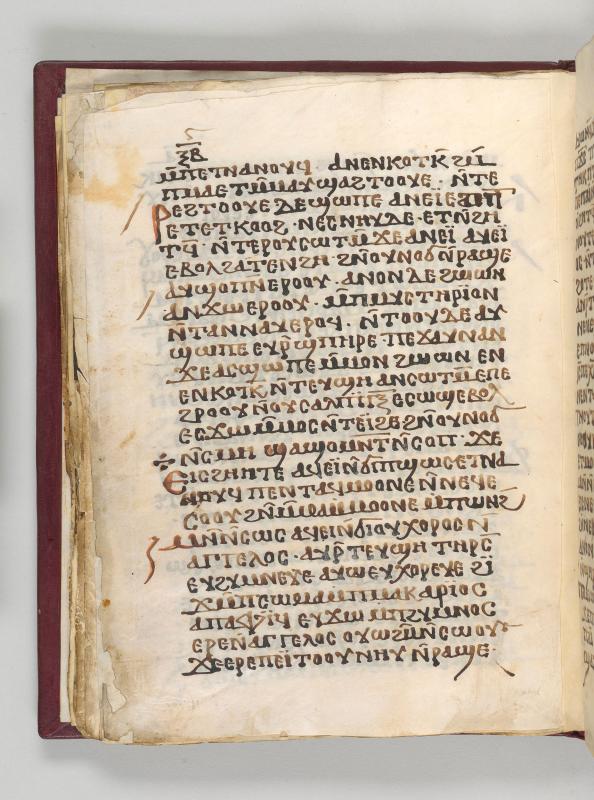 ⲝ̅ⲃ̅
ⲙ̅ⲡⲉⲧⲛⲁⲛⲟⲩϥ · ⲁⲛⲉⲛⲕⲟⲧⲕ̅ ϩⲓ̈ⲙ̅
ⲡⲙⲁⲉⲧⲙ̅ⲙⲁⲩϣⲁϩⲧⲟⲟⲩⲉ · ⲛ̅ⲧⲉ
ⲣⲉϩⲧⲟⲟⲩⲉⲇⲉϣⲱⲡⲉ ⲁⲛⲉⲓⲉ
ⲛⲉⲥⲛⲏⲩⲇⲉ · ⲉⲧⲛ̅ϩⲏ
ⲧϥ̅ · ⲛ̅ⲧⲉⲣⲟⲩⲥⲱⲧⲙ̅ϫⲉⲁⲛⲉⲓ̈ ⲁⲩⲉⲓ̈
ⲉⲃⲟⲗϩⲁⲧⲉⲛϩⲏ · ϩⲛ̅ⲟⲩⲛⲟϭⲛ̅ⲣⲁϣⲉ
ⲁⲩϣⲟⲡⲛ̅ⲉⲣⲟⲟⲩ · ⲁⲛⲟⲛⲇⲉϩⲱⲱⲛ
ⲁⲛϫⲱⲉⲣⲟⲟⲩ · ⲙ̅ⲡⲙⲩⲥⲧⲏⲣⲓ̈ⲟⲛ
ⲛ̅ⲧⲁⲛⲛⲁⲩⲉⲣⲟϥ · ⲛ̅ⲧⲟⲟⲩⲇⲉⲁⲩ
ϣⲱⲡⲉ ⲉⲩⲣ̅ϣⲡⲏⲣⲉ ⲡⲉϫⲁⲩⲛⲁⲛ
ϫⲉⲁⲥϣⲱⲡⲉⲙ̅ⲙⲟⲛϩⲱⲱⲛ ⲉⲛ
ⲉⲛⲕⲟⲧⲕ̅ ⲛ̅ⲧⲉⲩϣⲏⲁⲛⲥⲱⲧⲙ̅ⲉⲡⲉ
ϩⲣⲟⲟⲩⲛ̅ⲟⲩⲥⲁⲗⲡⲓⲅⲝ ⲉⲥⲱϣⲉⲃⲟⲗ
ⲉⲥϫⲱⲙ̅ⲙⲟⲥⲛ̅ⲧⲉⲓ̈ϩⲉϩⲛ̅ⲟⲩⲛⲟϭ
ⲛ̅ⲥⲙⲏ ϣⲁϣⲟⲙⲛ̅ⲧⲛ̅ⲥⲟⲡ · ϫⲉ
ⲉⲓⲥϩⲏⲏⲧⲉ ⲁϥⲉⲓⲛ̅ϭⲓⲡϣⲱⲥⲉⲧⲛⲁ
ⲛⲟⲩϥ ⲡⲉⲛⲧⲁϥⲙⲟⲟⲛⲉ ⲛ̅ⲛⲉϥⲉ
ⲥⲟⲟⲩ ϩⲛ̅ⲙ̅ⲙⲁⲙⲟⲟⲛⲉ ⲙ̅ⲡⲱⲛϩ̅
ⲙⲛ̅ⲛ̅ⲥⲱⲥ ⲁϥⲉⲓⲛ̅ϭⲓⲟⲩⲭⲟⲣⲟⲥ ⲛ̅
ⲁⲅⲅⲉⲗⲟⲥ · ⲁⲩⲣ̅ⲧⲉⲩϣⲏ ⲧⲏⲣⲥ̅
ⲉⲩϩⲩⲙⲛⲉⲩⲉ ⲁⲩⲱ ⲉⲩⲭⲟⲣⲉⲩⲉ ϩⲓ̈
ϫⲙ̅ⲡⲥⲱⲙⲁⲙ̅ⲡⲙⲁⲕⲁⲣⲓ̈ⲟⲥ
ⲉⲩϫⲱⲙ̅ⲡϩⲩⲙⲛⲟⲥ
ⲉⲣⲉⲛ̅ⲁⲅⲅⲉⲗⲟⲥ ⲟⲩⲱϩⲙ̅ⲛ̅ⲥⲱⲟⲩ
ϫⲉⲉⲣⲉⲡⲉⲓ̈ⲧⲟⲟⲩⲛⲏⲩ ⲛ̅ⲣⲁϣⲉ